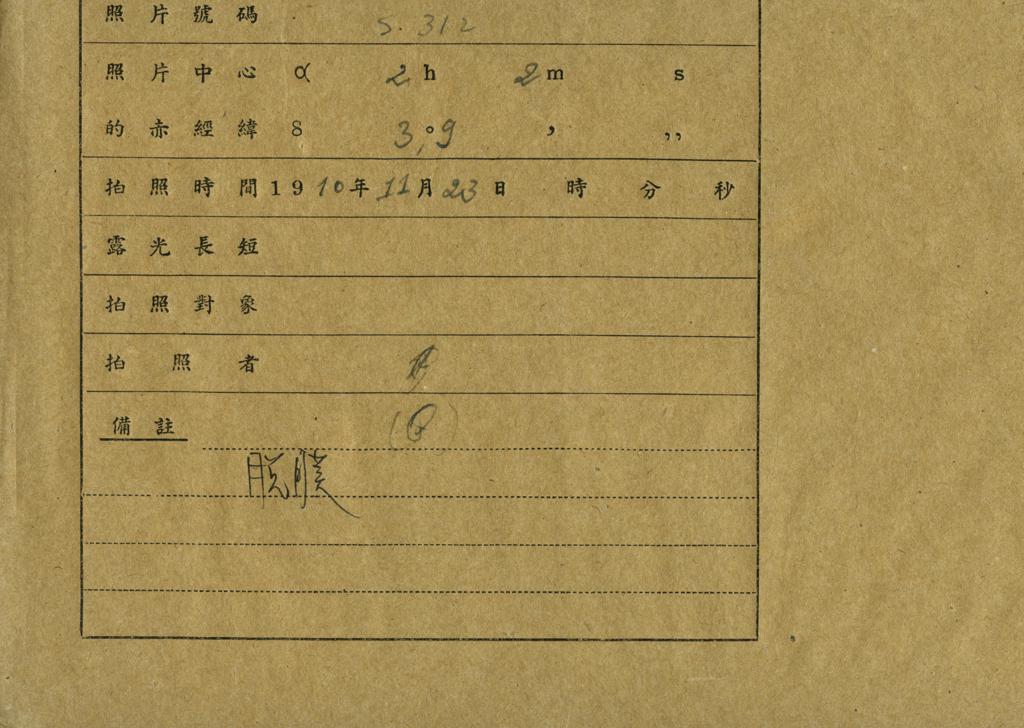 照片號碼 S. 312
照片中心 α 2 h 2 m s
的赤經緯 δ 3°.9 ’ ’’
拍照時間 1910年11月23日 時 分 秒
露光長短
拍照對象
拍照者
備註
脱膜